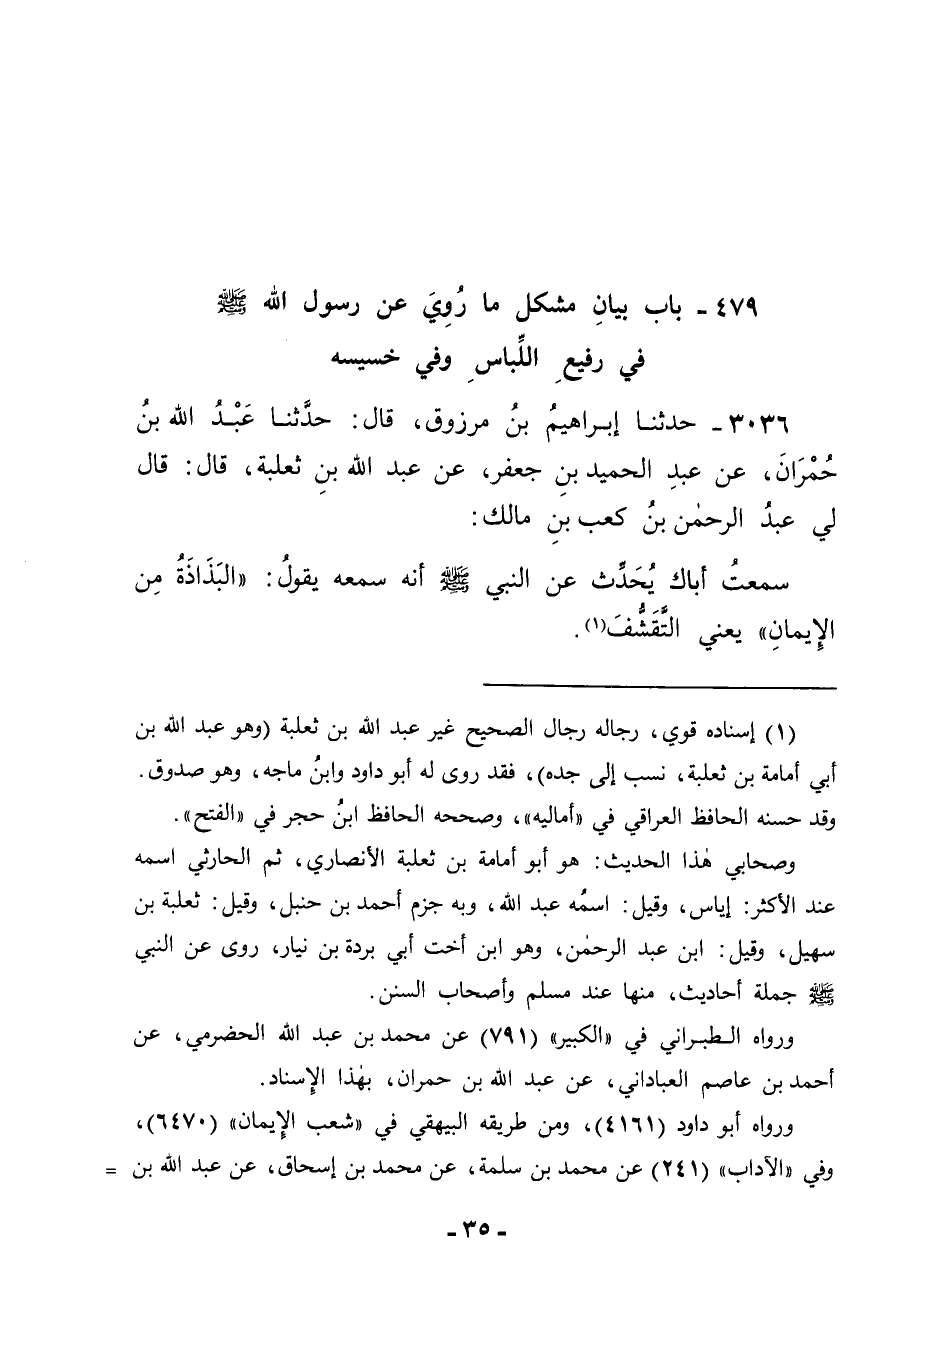 ٤٧٩ ـ باب بيانِ مشكل ما رُوِيَ عن رسول الله ﷺ
في رفيعِ اللِّباسِ وفي خسيسه
٣٠٣٦ ـ حدثنا إبراهيمُ بنُ مرزوق، قال: حدَّثنا عَبْدُ الله بنُ
حُمْرَانَ، عن عبدِ الحميد بنِ جعفر، عن عبد الله بنِ ثعلبة، قال: قال
لي عبدُ الرحمٰن بنُ كعب بنِ مالك:
سمعتُ أباك يُحَدِّث عن النبي ﷺ أنه سمعه يقولُ: «البَذَاذَةُ مِن
الإِيمانِ» يعني التَّقَشُّفَ(١).
(١) إسناده قوي، رجاله رجال الصحيح غير عبد الله بن ثعلبة (وهو عبد الله بن
أبي أمامة بن ثعلبة، نسب إلى جده)، فقد روى له أبو داود وابنُ ماجه، وهو صدوق.
وقد حسنه الحافظ العراقي في «أماليه»، وصححه الحافظ ابنُ حجر في «الفتح».
وصحابي هٰذا الحديث: هو أبو أمامة بن ثعلبة الأنصاري، ثم الحارثي اسمه
عند الأكثر: إياس، وقيل: اسمُه عبد الله، وبه جزم أحمد بن حنبل، وقيل: ثعلبة بن
سهيل، وقيل: ابن عبد الرحمٰن، وهو ابن أخت أبي بردة بن نيار، روى عن النبي
ﷺ جملة أحاديث، منها عند مسلم وأصحاب السنن.
ورواه الطبراني في «الكبير» (٧٩١) عن محمد بن عبد الله الحضرمي، عن
أحمد بن عاصم العباداني، عن عبد الله بن حمران، بهٰذا الإِسناد.
ورواه أبو داود (٤١٦١)، ومن طريقه البيهقي في «شعب الإِيمان» (٦٤٧٠)،
وفي «الآداب» (٢٤١) عن محمد بن سلمة، عن محمد بن إسحاق، عن عبد الله بن =
ـ ٣٥ ـ